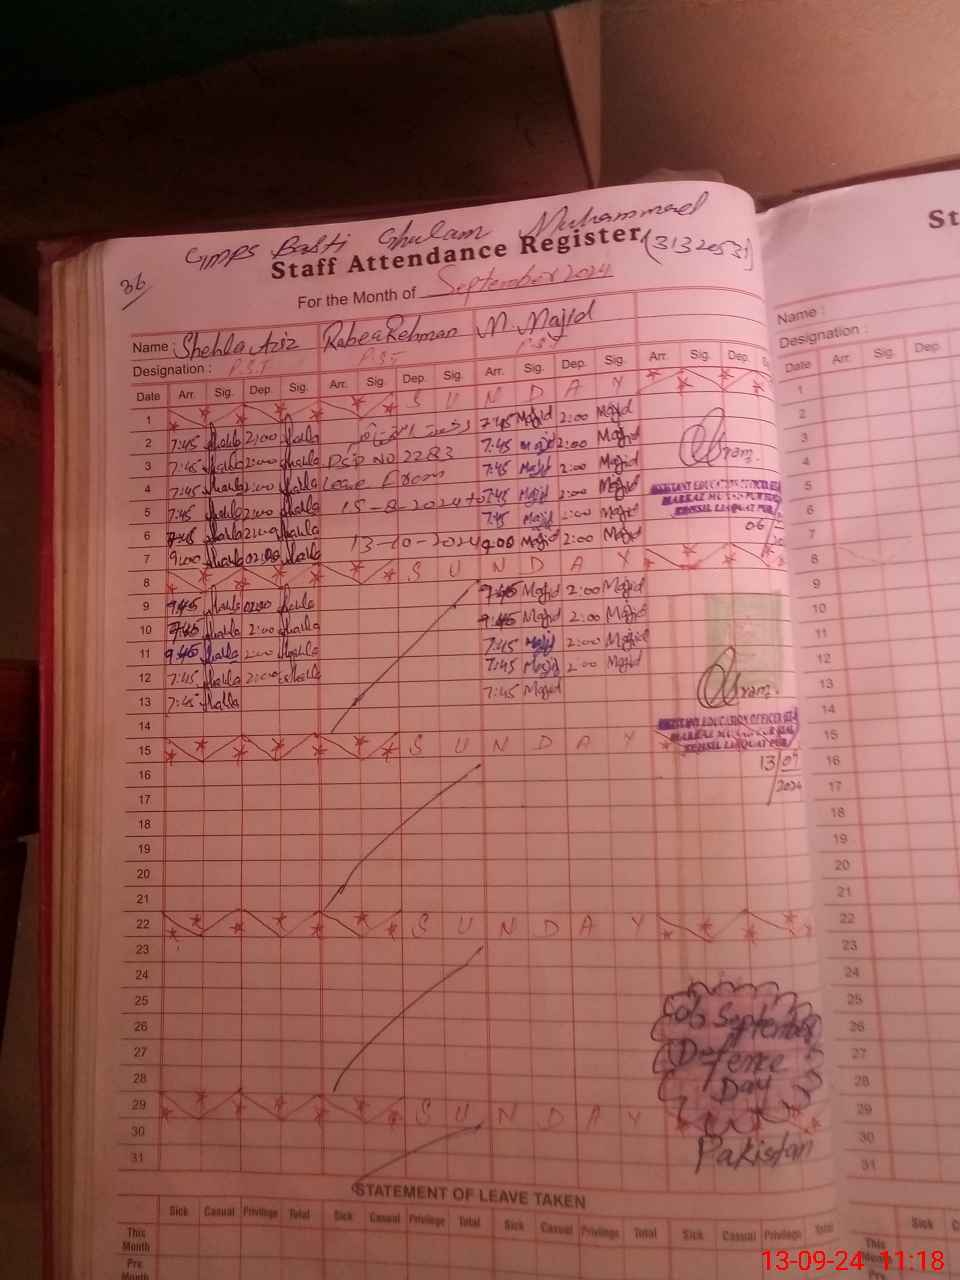 GMPS Basti Ghulam Muhammad
36 Staff Attendance Register (31320531)
For the Month of September 2024
Name: Shehla Aziz Rabea Rehman M. Majid
Designation: P.S.T P.S.T P.S.T
Date Arr. Sig. Dep. Sig. Arr. Sig. Dep. Sig. Arr. Sig. Dep. Sig. Arr. Sig. Dep.
1 S U N D A Y
2 7:45 Shahla 2:00 Shahla 7:45 Majid 2:00 Majid
3 7:45 Shahla 2:00 Shahla DSP NO 2283 7:45 Majid 2:00 Majid
4 7:45 Shahla 2:00 Shahla Leave From 7:45 Majid 2:00 Majid
5 7:45 Shahla 2:00 Shahla 15-8-2024 to 7:45 Majid 2:00 Majid
6 7:45 Shahla 2:00 Shahla 7:45 Majid 2:00 Majid
7 9:00 Shahla 02:00 Shahla 13-10-2024 9:00 Majid 2:00 Majid
8 S U N D A Y
9 7:45 Shahla 02:00 Shahla 7:45 Majid 2:00 Majid
10 7:45 Shahla 2:00 Shahla 7:45 Majid 2:00 Majid
11 7:45 Shahla 2:00 Shahla 7:45 Majid 2:00 Majid
12 7:45 Shahla 2:00 Shahla 7:45 Majid 2:00 Majid
13 7:45 Shahla 7:45 Majid
14
15 S U N D A Y
16
17
18
19
20
21
22 S U N D A Y
23
24
25
26
27
28
29 S U N D A Y
30
31
ASSISTANT EDUCATION OFFICER
MARKAZ
TEHSIL LIAQUAT PUR
06
ASSISTANT EDUCATION OFFICER
MARKAZ
TEHSIL LIAQUAT PUR
13/09
2024
06 September
Defence
Day
Pakistan
STATEMENT OF LEAVE TAKEN
Sick Casual Privilege Total Sick Casual Privilege Total Sick Casual Privilege Total Sick Casual Privilege Total
This
Month
Pre
Month
St
Name :
Designation :
Date Arr. Sig. Dep.
1
2
3
4
5
6
7
8
9
10
11
12
13
14
15
16
17
18
19
20
21
22
23
24
25
26
27
28
29
30
31
Sick
This
Month
13-09-24 11:18